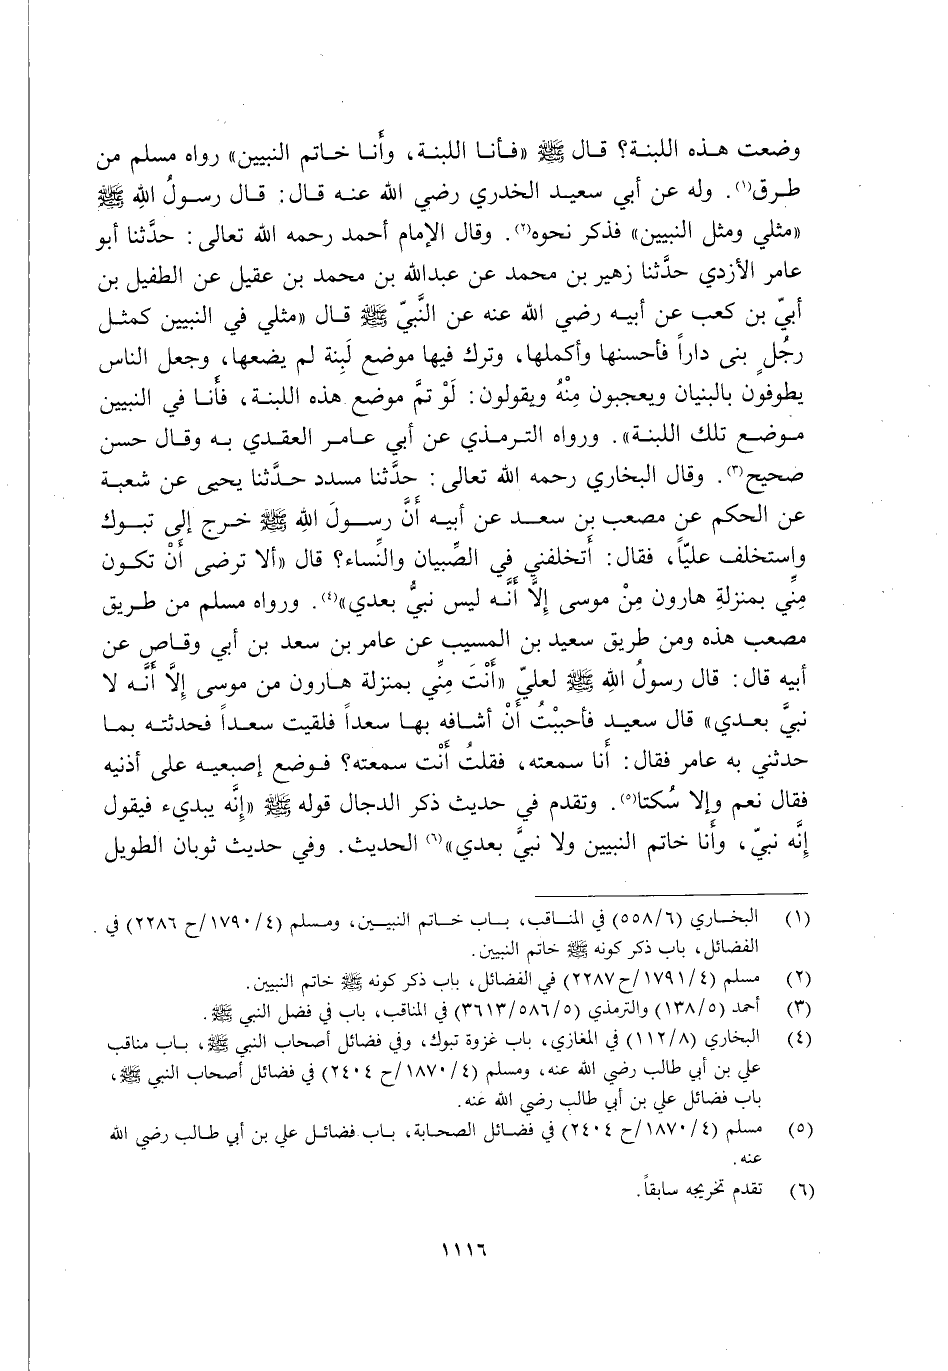 وضعت هـذه اللبنة؟ قـال ﷺ «فـأنـا اللبنة، وأَنـا خـاتم النبيين» رواه مسلم من
طـرق(١). وله عن أبي سعيـد الخـدري رضي الله عنـه قـال: قـال رسـولُ اللهِ ﷺ
«مثلي ومثل النبيين» فذكر نحوه(٢). وقال الإمام أحمد رحمه الله تعالى: حدَّثنا أبو
عامر الأزدي حدَّثنا زهير بن محمد عن عبدالله بن محمد بن عقيل عن الطفيل بن
أبيّ بن كعب عن أبيـه رضي الله عنه عن النَّبيّ ﷺ قـال «مثلي في النبيين كمثـل
رجُلٍ بنى داراً فأحسنها وأكملها، وترك فيها موضع لَبِنة لم يضعها، وجعل الناس
يطوفون بالبنيان ويعجبون مِنْهُ ويقولون: لَوْ تمَّ موضع هذه اللبنـة، فأَنـا في النبيين
مـوضـع تلك اللبنـة». ورواه التـرمـذي عن أبي عـامـر العقـدي بـه وقـال حسن
صحيح(٣). وقال البخاري رحمه الله تعالى: حدَّثنا مسدد حـدَّثنا يحيى عن شعبـة
عن الحكم عن مصعب بن سعـد عن أبيـه أَنَّ رسـولَ اللهِ ﷺ خـرج إلى تبـوك
واستخلف عليّاً، فقال: أَتخلفني في الصِّبيان والنِّساء؟ قال «ألا ترضى أَنْ تكـون
مِنِّي بمنزلةِ هارون مِنْ موسى إلاَّ أَنَّـه ليس نبيٌّ بعدي»(٤). ورواه مسلم من طـريق
مصعب هذه ومن طريق سعيد بن المسيب عن عامر بن سعد بن أبي وقـاص عن
أبيه قال: قال رسولُ اللهِ ﷺ لعليّ «أَنْتَ مِنِّي بمنزلة هـارون من موسى إلاَّ أَنَّـه لا
نبيَّ بعـدي» قال سعيـد فأحببْتُ أَنْ أشافه بهـا سعداً فلقيت سعـداً فحدثتـه بمـا
حدثني به عامر فقال: أَنا سمعته، فقلتُ أَنْت سمعته؟ فـوضع إصبعيـه على أذنيه
فقال نعم وإلا سُكتا(٥). وتقدم في حديث ذكر الدجال قوله ﷺ «إِنَّه يبديء فيقول
إنَّه نبيّ، وأَنا خاتم النبيين ولا نبيَّ بعدي»(٦) الحديث. وفي حديث ثوبان الطويل
(١) البخـاري (٥٥٨/٦) في المنـاقب، بـاب خـاتم النبيـين، ومـسلم (١٧٩٠/٤/ح ٢٢٨٦) في
الفضائل، باب ذكر كونه ﷺ خاتم النبيين.
(٢) مسلم (١٧٩١/٤/ح ٢٢٨٧) في الفضائل، باب ذكر كونه ﷺ خاتم النبيين.
(٣) أحمد (١٣٨/٥) والترمذي (٣٦١٣/٥٨٦/٥) في المناقب، باب في فضل النبي ﷺ.
(٤) البخاري (١١٢/٨) في المغازي، باب غزوة تبوك، وفي فضائل أصحاب النبي ﷺ، بـاب مناقب
علي بن أبي طالب رضي الله عنه، ومسلم (١٨٧٠/٤/ح ٢٤٠٤) في فضائل أصحاب النبي ﷺ،
باب فضائل علي بن أبي طالب رضي الله عنه.
(٥) مسلم (١٨٧٠/٤/ح ٢٤٠٤) في فضـائل الصحـابة، بـاب فضائـل علي بن أبي طـالب رضي الله
عنه.
(٦) تقدم تخريجه سابقاً.
١١١٦